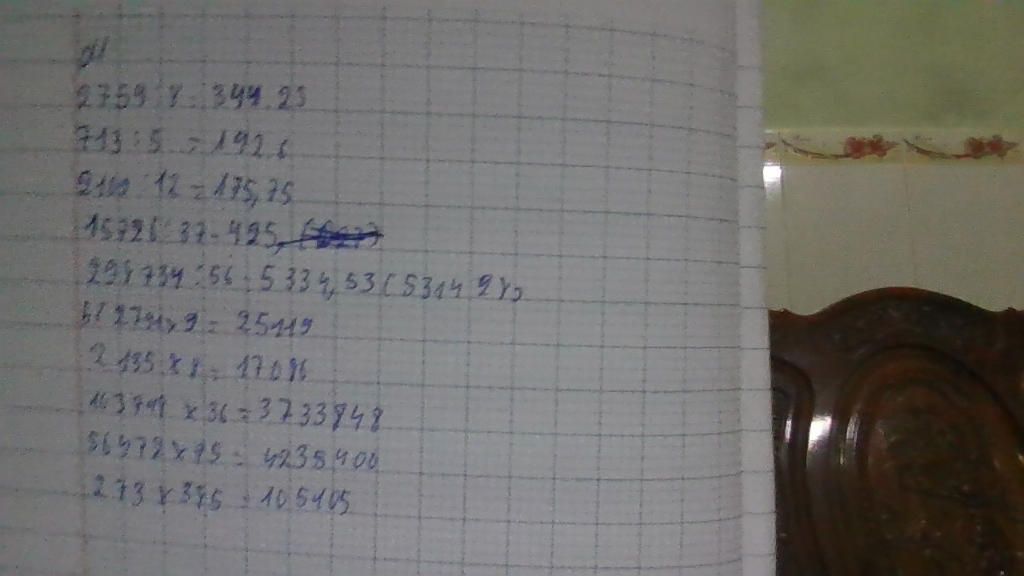 2759 : 8 = 344.23
713 : 5 = 192 6
2109 : 12 = 175,75
15726 : 37 = 425,
298734 : 56 = 5334,53 (5314 98)
2791 x 9 = 25119
2135 x 8 = 17086
103718 x 36 = 3733848
56512 x 75 = 4238400
273 x 385 = 105105